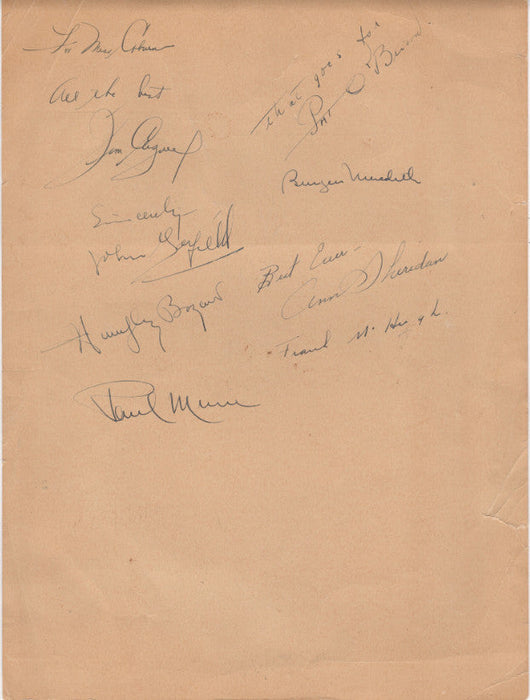 For Max
All the best
Jim Cagney
that goes for
Pat O'Brien
Burgess Meredith
Sincerely
John Garfield
Best Ever
Ann Sheridan
Humphrey Bogart
Frank McHugh
Paul Muni